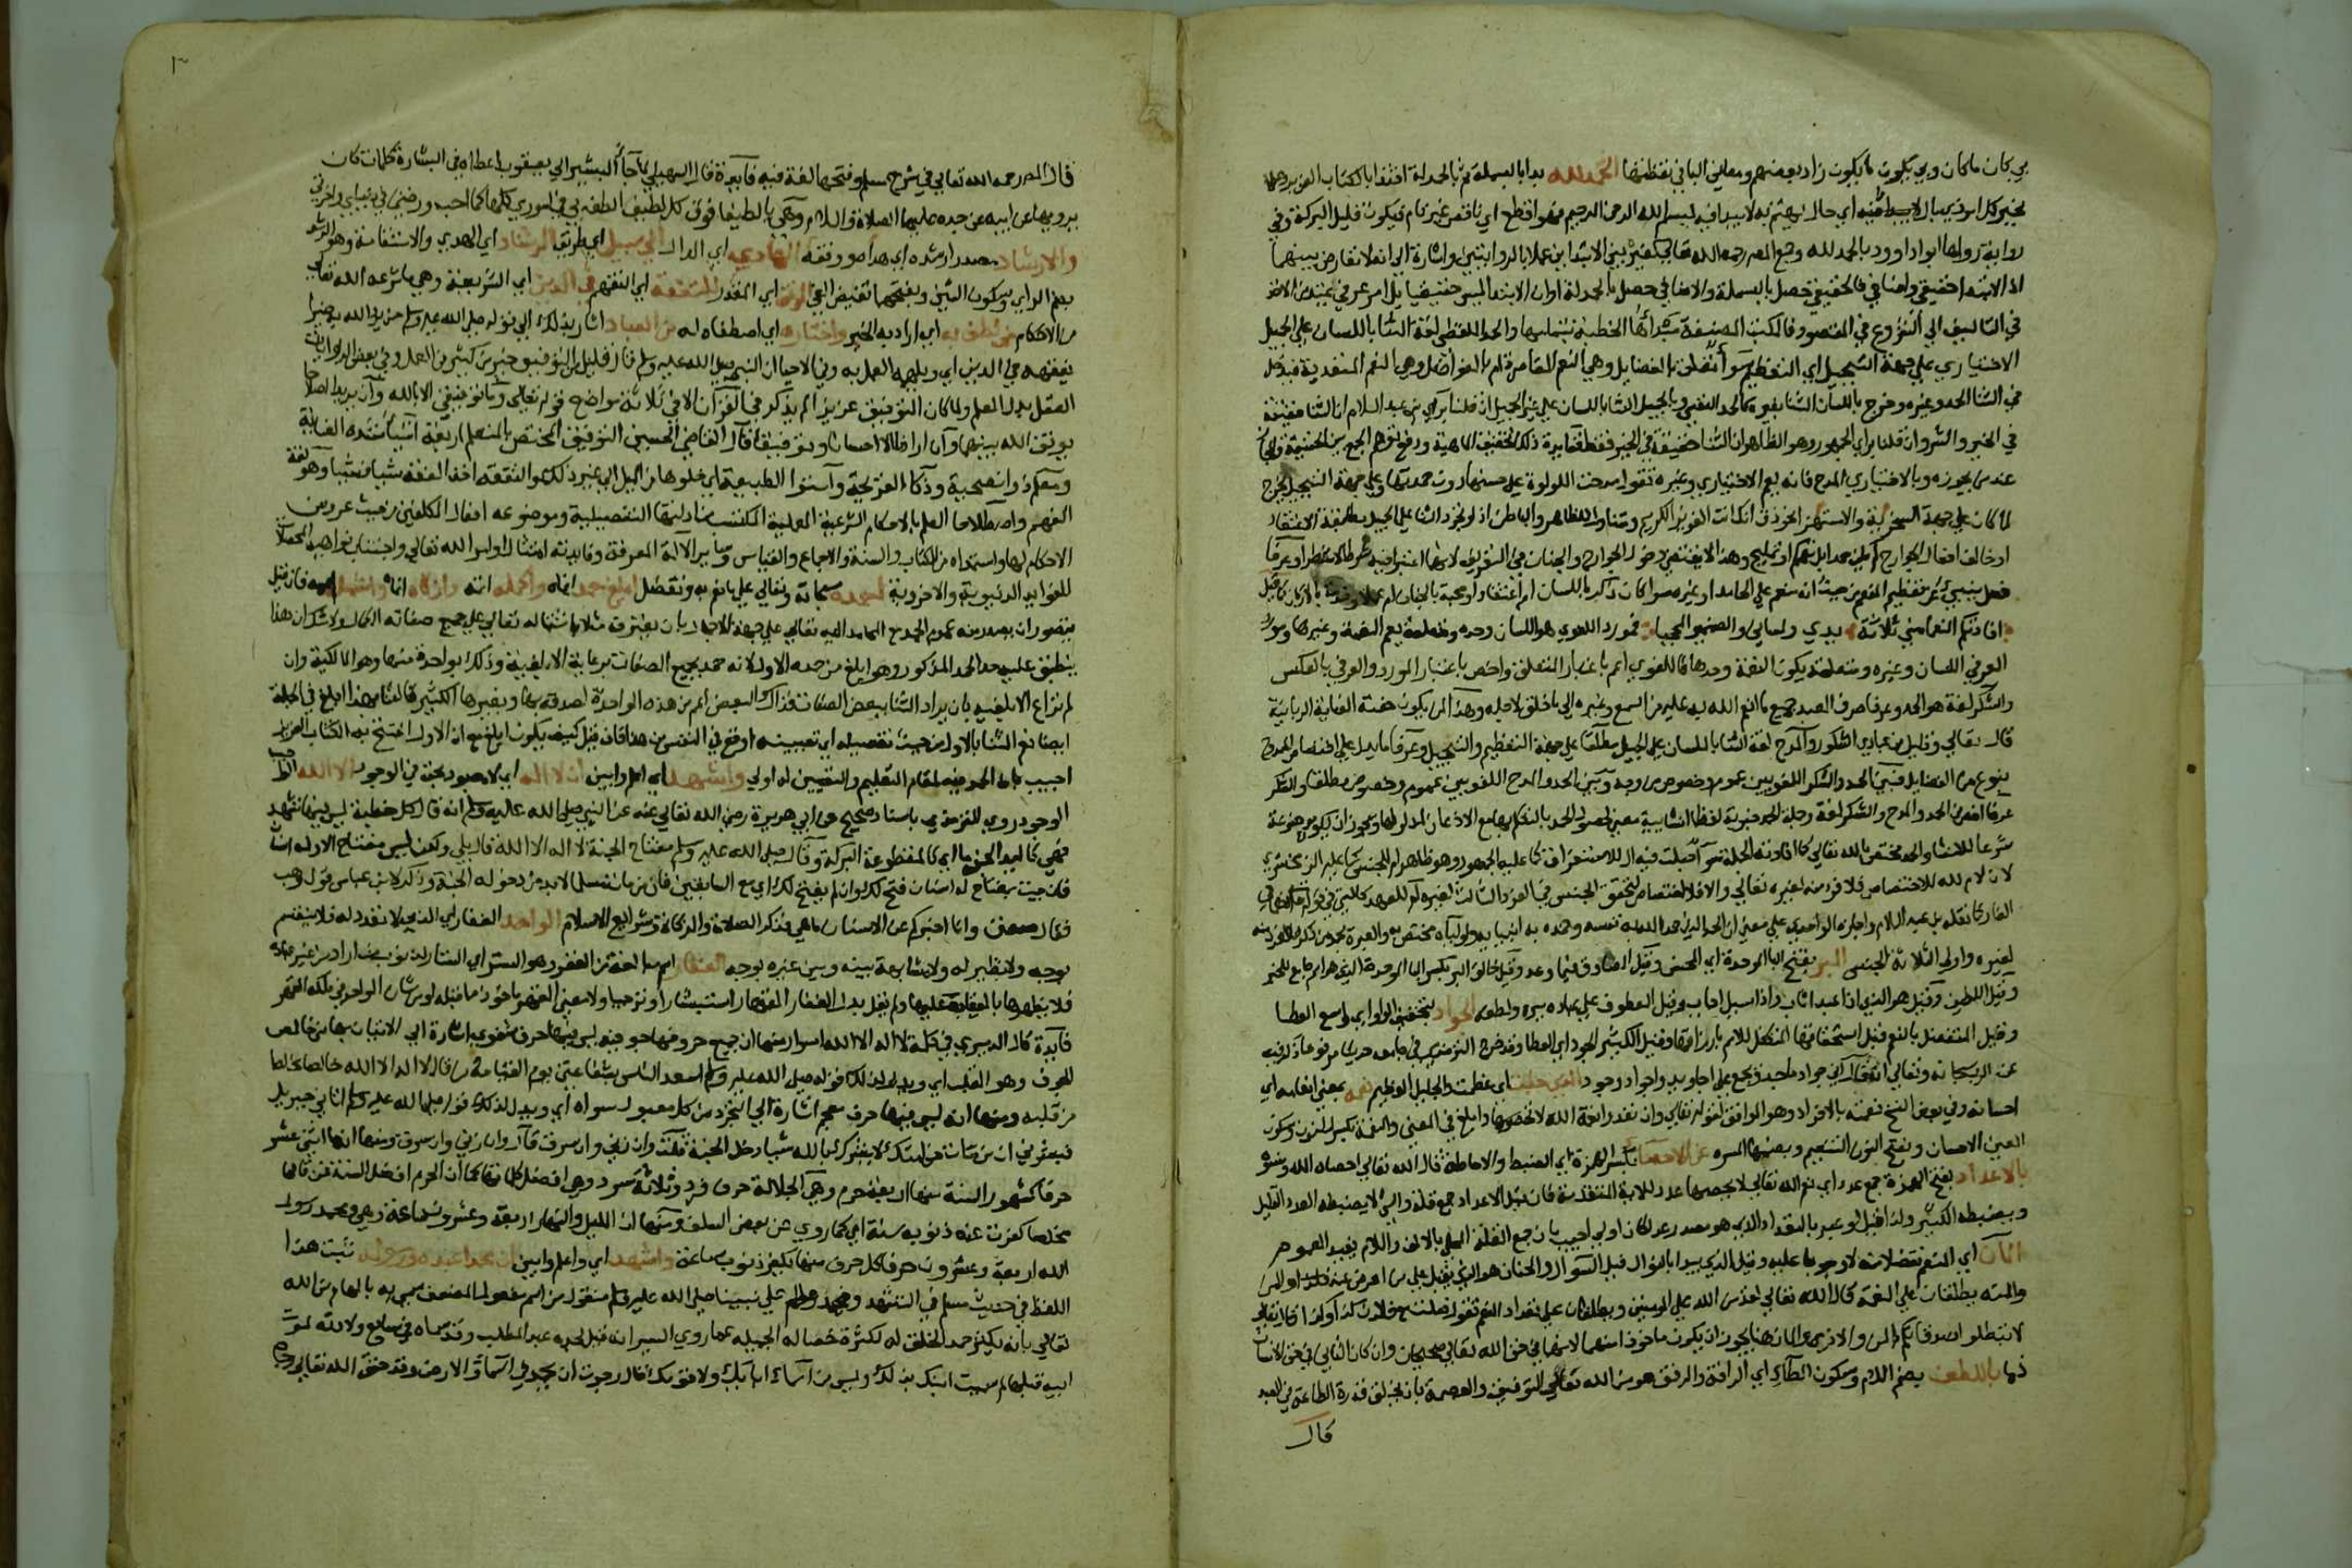 بي كان ما كان وبي يكون ما يكون زاد بعضهم ومعاني الباقي نقطتها الحمد لله بدأ بالبسملة ثم بالحمدلة اقتداء بالكتاب العزيز وعملا
بخبر كل امر ذي بال لا يبدا فيه اي حال يهتم به لا يبدا فيه ببسم الله الرحمن الرحيم فهو اقطع اي ناقص غير تام فيكون قليل البركة وفي
رواية رواها ابو داود بالحمد لله وجمع المص رحمه الله تعالى كغيره بين الابتدائين عملا بالروايتين واشارة الى انه لا تعارض بينهما
اذ الابتداء حقيقي واضافي فالحقيقي حصل بالبسملة والاضافي حصل بالحمدلة او ان الابتداء ليس حقيقيا بل امر عرفي يمتد من الاخذ
في التاليف الى الشروع في المقصود فالكتب المصنفة مبداها الخطبة بتمامها والحمد اللفظي لغة الثناء باللسان على الجميل
الاختياري على جهة التبجيل اي التعظيم سواء تعلق بالفضايل وهي النعم القاصرة ام بالفواضل وهي النعم المتعدية فدخل
في الثنا الحمد وغيره وخرج باللسان الثنا بغيره كالحمد النفسي وبالجميل الثنا باللسان على غير الجميل ان قلنا براي بن عبد السلام ان الثنا حقيقة
في الخير والشر وان قلنا براي الجمهور وهو الظاهر ان الثنا حقيقة في الخير فقط ففايدة ذلك تحقيق الماهية او دفع توهم الجمع بين الحقيقة والمجاز
عند من يجوزه وبالاختياري المدح فانه يعم الاختياري وغيره تقول مدحت اللولوة على حسنها دون حمدتها وعلى جهة التبجيل مخرج
لما كان على جهة السخرية والاستهزا نحو ذق انك انت العزيز الكريم ومتناول للظاهر والباطن اذ لو تجرد الثنا على الجميل عن مطابقة الاعتقاد
او خالفه افعال الجوارح لم يكن حمدا بل تهكم او تمليح وهذا لا يقتضي دخول الجوارح والجنان في التعريف لانهما اعتبرا فيه شرطا لا شطرا وعرفا
فعل ينبي عن تعظيم المنعم من حيث انه منعم على الحامد او غيره سوا كان ذكرا باللسان ام اعتقادا ومحبة بالجنان ام عملا وخدمة بالاركان كما قيل
افادتكم النعماء مني ثلاثة يدي ولساني والضمير المحجبا فمورد اللغوي هو اللسان وحده ومتعلقه يعم النعمة وغيرها ومورد
العرفي اللسان وغيره ومتعلقه يكون النعمة وحدها فاللغوي اعم باعتبار المتعلق واخص باعتبار المورد والعرفي بالعكس
والشكر لغة هو الحمد وعرفا صرف العبد جميع ما انعم الله به عليه من السمع وغيره الى ما خلق لاجله وهذا لمن يكون حفته العناية الربانية
قال تعالى وقليل من عبادي الشكور والمدح لغة الثنا باللسان على الجميل مطلقا على جهة التعظيم والتبجيل وعرفا ما يدل على اختصاص الممدوح
بنوع من الفضايل فبين الحمد والشكر اللغويين عموم وخصوص من وجه وبين الحمد والمدح اللغويين عموم وخصوص مطلقا والشكر
عرفا اخص من الحمد والمدح والشكر لغة وجملة الحمد خبرية لفظا انشايية معنى لحصول الحمد بالتكلم بها مع الاذعان لمدلولها ويجوز ان تكون موضوعة
شرعا للانشا والحمد مختص بالله تعالى كما افادته الجملة سوا جعلت فيه ال للاستغراق كما عليه الجمهور وهو ظاهر ام للجنس كما عليه الزمخشري
لان لام لله للاختصاص فلا فرد منه لغيره تعالى والا فلا اختصاص لتحقق الجنس في الفرد الثابت لغيره ام للعهد كالتي في قوله تعالى اذ هما في
الغار كما نقله بن عبد السلام واجازه الواحدي على معنى ان الحمد الذي حمد الله به نفسه وحمده به انبياوه واولياوه مختص به والعبرة بحمد من ذكر فلا فرد منه
لغيره واولى الثلاثة الجنس البر بفتح الباء الموحدة اي المحسن وقيل الصادق فيما وعد وقيل خالق البر بكسر الباء الموحدة الذي هو اسم جامع للخير
وقيل اللطيف وقيل هو الذي اذا عبد اثاب واذا سيل اجاب وقيل العطوف على عباده ببره ولطفه الجواد بتخفيف الواو اي واسع العطا
وقيل المتفضل بالنعم قبل استحقاقها المتكفل للامم بارزاقها وقيل الكثير الجود اي العطا وقد خرج الترمذي في جامعه حديثا مرفوعا ذكر فيه
عن الرب سبحانه وتعالى انه قال اني جواد ماجد ويجمع على اجاويد واجواد وجود الذي جلت اي عظمت والجليل العظيم نعمه بمعنى انعامه اي
احسانه وفي بعض النسخ نعمته بالافراد وهو الموافق لقوله تعالى وان تعدوا نعمة الله لا تحصوها وابلغ في المعنى والنعمة بكسر النون وسكون
العين الاحسان وبفتح النون التنعيم وبضمها المسرة عن الاحصاء بكسر الهمزة اي الضبط والاحاطة قال الله تعالى احصاه الله ونسوه
بالاعداد بفتح الهمزة جمع عدد اي نعم الله تعالى لا يحصيها عدد للاية المتقدمة فان قيل الاعداد جمع قلة والشي لا يضبطه العدد القليل
ويضبطه الكثير ولذا قيل لو عبر بالتعداد الذي هو مصدر عد لكان اولى اجيب بان جمع القلة المحلى بالالف واللام يفيد العموم
المنان اي المنعم تفضلا منه لا وجوبا عليه وقيل الذي يبدا بالنوال قبل السوال والحنان هو الذي يقبل على من اعرض عنه
والمنة يطلقان على النعمة قال الله تعالى لقد من الله على المومنين ويطلقان على تعداد النعم تقول فعلت مع فلان كذا وكذا قال تعالى
لا تبطلوا صدقاتكم بالمن والاذى والمنان هنا يجوز ان يكون ماخوذا منهما لانهما في حق الله تعالى صحيحان وان كان الثاني في حق الانسان
ذما باللطف بضم اللام وسكون الطاء اي الرافة والرفق هو من الله تعالى التوفيق والعصمة بان يخلق قدرة الطاعة في العبد
قال
قال المص رحمه الله تعالى في شرح مسلم وفتحها لغة فيه فايدة قال السهيلي لما جاء البشير الى يعقوب اعطاه في البشارة كلمات كان
يرويها عن ابيه عن جده عليهما الصلاة والسلام وهي يا لطيفا فوق كل لطيف الطف بي في اموري كلها كما احب ورضني في دنياي واخرتي
والارشاد مصدر ارشده اي هداه ووفقه الهادي اي الدال الى سبيل اي طريق الرشاد اي الهدى والاستقامة وهو الرشد
بضم الراي وسكون الشين وبفتحهما نقيض الغي الموفق اي المقدر للتفقه اي التفهم في الدين اي الشريعة وهي ما شرعه الله تعالى
من الاحكام من لطف به اي اراد به الخير واختاره اي اصطفاه له من العباد اشار بذلك الى قوله صلى الله عليه وسلم من يرد الله به خيرا
يفقهه في الدين اي ويلهمه العمل به وفي الاحيا ان النبي صلى الله عليه وسلم قال قليل من التوفيق خير من كثير من العمل وفي بعض الروايات
العقل بدل العلم ولما كان التوفيق عزيزا لم يذكر في القران الا في ثلاثة مواضع قوله تعالى وما توفيقي الا بالله وان يريدا اصلاحا
يوفق الله بينهما وان اردنا الا احسانا وتوفيقا قال القاضي الحسين التوفيق المختص بالمتعلم اربعة اشياء شدة العناية
ومعلم ذو نصيحة وذكاء القريحة واستواء الطبيعة اي خلوها من الميل الى غير ذلك والتفقه اخذ الفقه شيا فشيا وهو لغة
الفهم واصطلاحا العلم بالاحكام الشرعية العملية المكتسب من ادلتها التفصيلية وموضوعه افعال المكلفين من حيث عروض
الاحكام لها واستمداده من الكتاب والسنة والاجماع والقياس وساير الادلة المعرفة وفايدته امتثال اوامر الله تعالى واجتناب نواهيه المحصلان
للفوايد الدنيوية والاخروية احمده سبحانه وتعالى على ما نعم به وتفضل ابلغ حمد انهاه واكمله اتمه وازكاه انماه واشمله اعمه فان قيل
يتصور ان يصدر منه عموم الحمد مع المحامد اليه تعالى على جهة الاجمال بان يعترف مثلا باشتماله تعالى على جميع صفات الكمال ولا شك ان هذا
ينطبق عليه حد الحمد المذكور وهو ابلغ من حمده الاول لانه حمد بجميع الصفات برعاية الابلغية وذلك بواحدة منها وهو المالكية وان
لم تراع الابلغية بان يراد الثنا ببعض الصفات فذاك البعض اعم من هذه الواحدة لصدقه بها وبغيرها الكثير فالثنا بهذا ابلغ في الجملة
ايضا نعم الثنا بالاول من حيث تفصيله اي تعيينه اوقع في النفس من هذا فان قيل كيف يكون ابلغ مع ان الاول افتتح به الكتاب العزيز
اجيب بان الحمد فيه لمقام التعليم والتعيين له اولى واشهد اي اعلم وابين ان لا اله اي لا معبود بحق في الوجود الا الله الواجب
الوجود روى الترمذي باسناد صحيح عن ابي هريرة رضي الله تعالى عنه عن النبي صلى الله عليه وسلم انه قال كل خطبة ليس فيها تشهد
فهي كاليد الجذما اي كالمقطوعة البركة وقال صلى الله عليه وسلم مفتاح الجنة لا اله الا الله قال بلى ولكن ليس مفتاح الا وله اسنان
فان جيت بمفتاح له اسنان فتح لك وان لم يفتح لك اي مع السابقين فان من مات مسلما لابد من دخوله الجنة وذكر لابن عباس قول وهب
فقال صدق وانا اخبركم عن الاسنان ما هي فذكر الصلاة والزكاة وشرايع الاسلام الواحد الغفار اي الذي لا تعدد له فلا ينقسم
بوجه ولا نظير له ولا مشابهة بينه وبين غيره بوجه الغفار اسم مبالغة من الغفر وهو الستر اي الستار لذنوب من اراد من عباده
فلا يظهرها بالعقاب عليها ولم يقل بدل الغفار القهار استبشارا وترجيا ولا معنى القهر ماخوذ مما قبله اذ من شان الواحد في ملكه القهر
فايدة قال الدميري في كلمة لا اله الا الله اسرار منها ان جميع حروفها جوفية ليس فيها حرف شفوي اشارة الى الاتيان بها من خالص
الجوف وهو القلب اي ويدل لذلك قوله صلى الله عليه وسلم اسعد الناس بشفاعتي يوم القيامة من قال لا اله الا الله خالصا مخلصا
من قلبه ومنها انه ليس فيها حرف معجم اشارة الى التجرد من كل معبود سواه اي ويدل لذلك قوله صلى الله عليه وسلم اتاني جبريل
فبشرني ان من مات من امتك لا يشرك بالله شيا دخل الجنة فقلت وان زنى وان سرق قال وان زنى وان سرق ومنها انها اثنى عشر
حرفا كشهور السنة منها اربعة حرم وهي الجلالة حرف فرد وثلاثة سرد وهي افضل كلماتها كما ان الحرم افضل السنة فمن قالها
مخلصا كفرت عنه ذنوب سنة اي كما روي عن بعض السلف ومنها ان الليل والنهار اربعة وعشرون ساعة وهي ومحمد رسول
الله اربعة وعشرون حرفا كل حرف منها يكفر ذنوب ساعة واشهد اي واعلم وابين ان محمدا عبده ورسوله ثبت هذا
اللفظ في حديث مسلم في التشهد ومحمد علم على نبينا صلى الله عليه وسلم منقول من اسم مفعول المضعف سمي به بالهام من الله
تعالى بانه يكثر حمد الخلق له لكثرة خصاله الجميلة كما روي في السير انه قيل لجده عبد المطلب وقد سماه في سابع ولادته لموت
ابيه قبلها لم سميت ابنك محمدا وليس من اسماء ابايك ولا قومك قال رجوت ان يحمد في السماء والارض وقد حقق الله تعالى رجاه